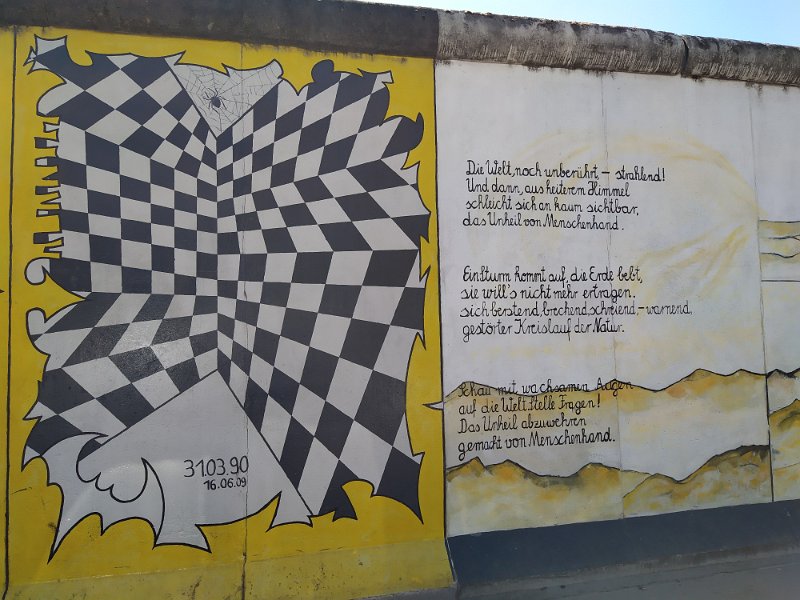 31.03.90
16.06.09
Die Welt, noch unberührt, – strahlend!
Und dann, aus heiterem Himmel
schleicht sich an kaum sichtbar,
das Unheil von Menschenhand.
Ein Sturm kommt auf, die Erde bebt,
sie will's nicht mehr ertragen.
sich berstend, brechend, schreiend, – warnend,
gestörter Kreislauf der Natur.
Schau mit wachsamen Augen
auf die Welt, stelle Fragen!
Das Unheil abzuwehren
gemacht von Menschenhand.